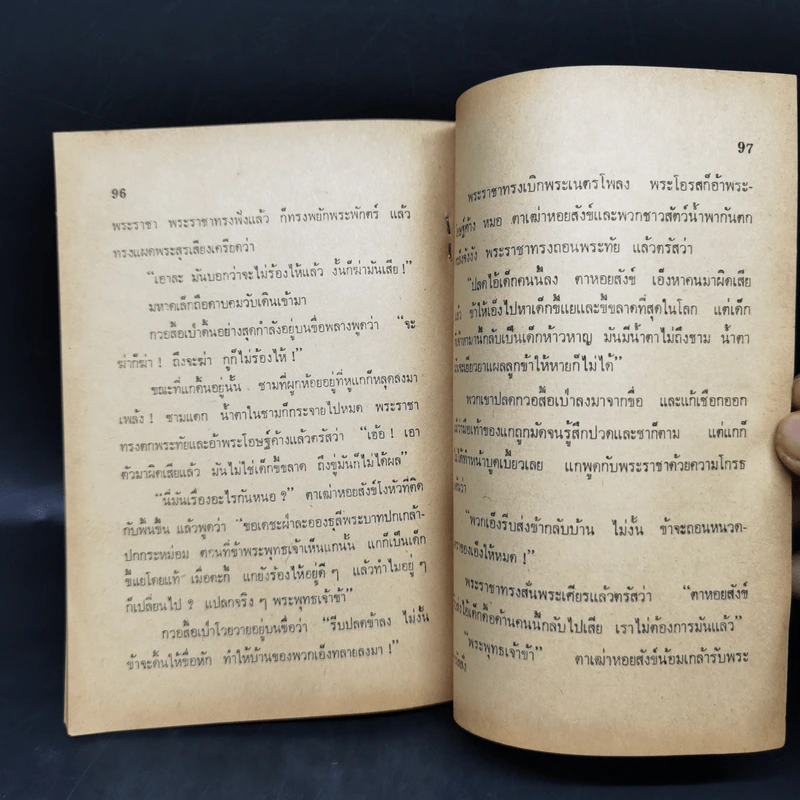 96
พระราชา พระราชาทรงฟังแล้ว ก็ทรงพยักพระพักตร์ แล้ว
ทรงแผดพระสุรเสียงเครียดว่า
“เอาละ มันบอกว่าจะไม่ร้องไห้แล้ว งั้นก็ฆ่ามันเสีย !”
มหาดเล็กถือดาบคมวับเดินเข้ามา
กวอสือเป่าดิ้นอย่างสุดกำลังอยู่บนขื่อพลางพูดว่า “จะ
ฆ่าก็ฆ่า ! ถึงจะฆ่า กูก็ไม่ร้องไห้ !”
ขณะที่แกดิ้นอยู่นั้น ชามที่ผูกห้อยอยู่ที่หูแกก็หลุดลงมา
เพล้ง ! ชามแตก น้ำตาในชามก็กระจายไปหมด พระราชา
ทรงตกพระทัยและอ้าพระโอษฐ์ค้างแล้วตรัสว่า “เอ้อ ! เอา
ตัวมาผิดเสียแล้ว มันไม่ใช่เด็กขี้ขลาด ถึงขู่มันก็ไม่ได้ผล”
“นี่มันเรื่องอะไรกันหนอ ?” ตาเฒ่าหอยสังข์โงหัวที่ติด
กับพื้นขึ้น แล้วพูดว่า “ขอเดชะฝ่าละอองธุลีพระบาทปกเกล้า-
ปกกระหม่อม ตอนที่ข้าพระพุทธเจ้าเห็นแกนั้น แกก็เป็นเด็ก
ขี้แยโดยแท้ เมื่อตะกี้ แกยังร้องไห้อยู่ดี ๆ แล้วทำไมอยู่ ๆ
ก็เปลี่ยนไป ? แปลกจริง ๆ พระพุทธเจ้าข้า”
กวอสือเป่าโวยวายอยู่บนขื่อว่า “รีบปลดข้าลง ไม่งั้น
ข้าจะดิ้นให้ขื่อหัก ทำให้บ้านของพวกเอ็งทลายลงมา !”
97
พระราชาทรงเบิกพระเนตรโพลง พระโอรสก็อ้าพระ-
ค้าง หมอ ตาเฒ่าหอยสังข์และพวกชาวสัตว์น้ำพากันตก
พระราชาทรงถอนพระทัย แล้วตรัสว่า
“ปลดไอ้เด็กคนนี้ลง ตาหอยสังข์ เอ็งหาคนมาผิดเสีย
ข้าให้เอ็งไปหาเด็กขี้แยและขี้ขลาดที่สุดในโลก แต่เด็ก
กลับเป็นเด็กห้าวหาญ มันมีน้ำตาไม่ถึงชาม น้ำตา
ยาแผลลูกข้าให้หายก็ไม่ได้”
พวกเขาปลดกวอสือเป่าลงมาจากขื่อ และแก้เชือกออก
มือเท้าของแกถูกมัดจนรู้สึกปวดและชาก็ตาม แต่แกก็
ทำหน้าบูดเบี้ยวเลย แกพูดกับพระราชาด้วยความโกรธ
ว่า
“พวกเอ็งรีบส่งข้ากลับบ้าน ไม่งั้น ข้าจะถอนหนวด-
ของเอ็งให้หมด !”
พระราชาทรงสั่นพระเศียรแล้วตรัสว่า “ตาหอยสังข์
ไอ้เด็กดื้อด้านคนนี้กลับไปเสีย เราไม่ต้องการมันแล้ว”
“พระพุทธเจ้าข้า” ตาเฒ่าหอยสังข์น้อมเกล้ารับพระ